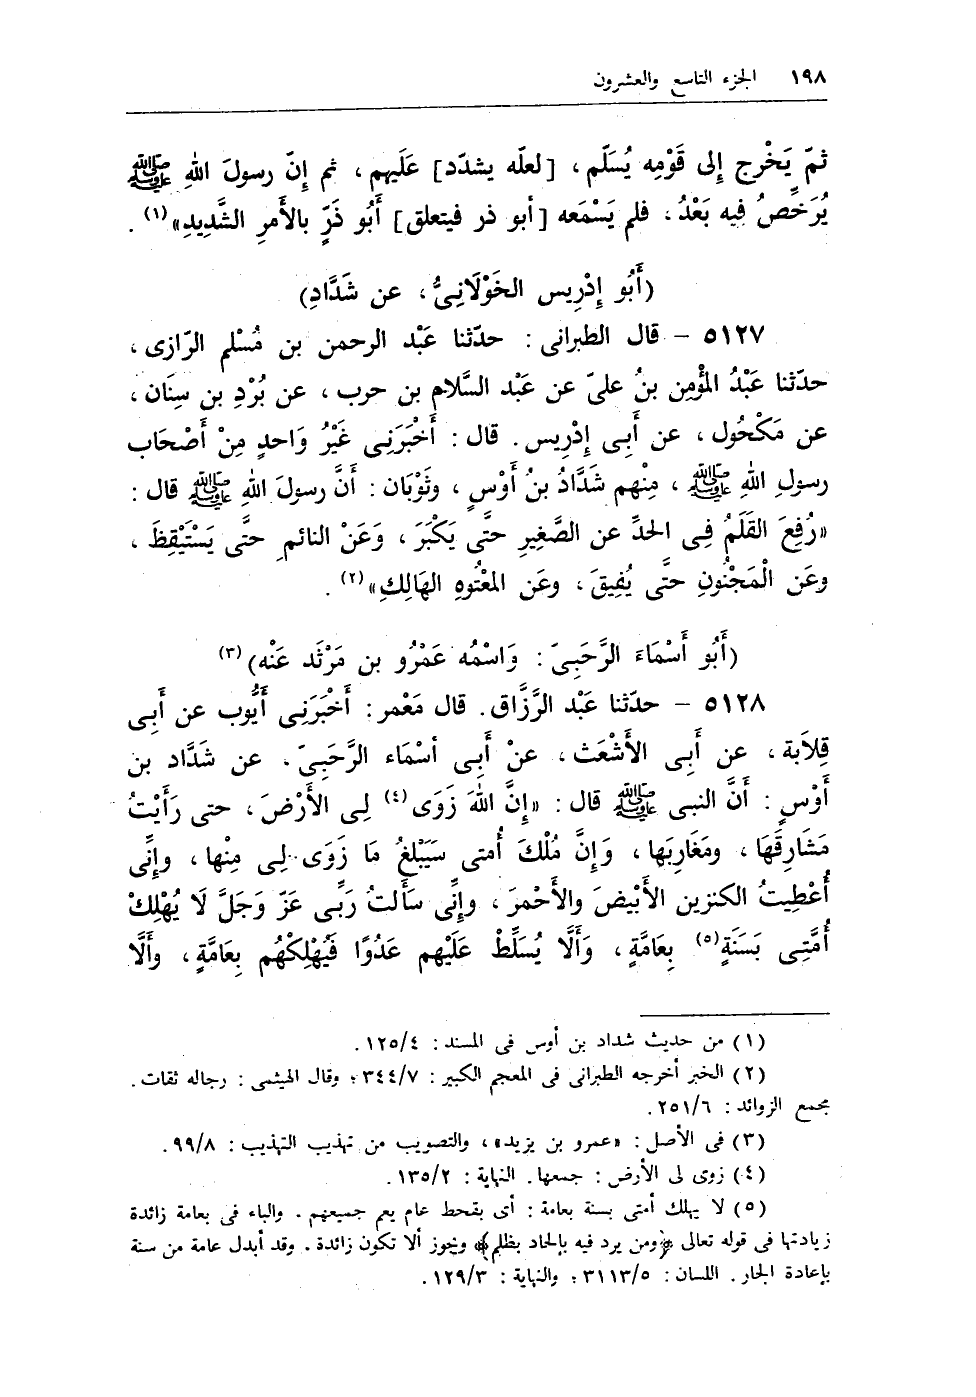 ١٩٨ الجزء التاسع والعشرون
ثمّ يَخْرج إلى قَوْمِه يُسَلّم ، [لعلّه يشدّد] عَلَيهم ، ثم إنّ رسولَ اللهِ ﷺ
يُرَخِّصُ فِيه بَعْدُ ، فلم يَسْمَعه [أبو ذر فيتعلق] أَبُو ذَرٍّ بالأَمرِ الشَّدِيدِ»(١) .
(أَبُو إدْرِيس الخَوْلَانِىُّ ، عن شَدَّادِ)
٥١٢٧ – قال الطبرانى : حدّثنا عَبْد الرحمن بن مُسْلم الرّازى ،
حدّثنا عَبْدُ المُؤْمِن بنُ علىّ عن عَبْد السَّلام بن حرب ، عن بُرْدِ بن سِنَان ،
عن مَكْحُول ، عن أَبِى إدْرِيس . قال : أَخْبَرَنِى غَيْرُ وَاحدٍ مِنْ أَصْحَاب
رسولِ اللهِ ﷺ ، مِنْهم شَدَّادُ بنُ أَوْسٍ ، وثَوْبَان : أَنَّ رسولَ اللهِ ﷺ قال :
«رُفِعَ القَلَمُ فِى الحدِّ عن الصَّغِيرِ حتَّى يَكْبَرَ ، وَعَنْ النائمِ حتَّى يَسْتَيْقِظَ ،
وعَن الْمَجْنُونِ حتَّى يُفِيقَ ، وعَن المَعْتُوهِ الهَالِكِ»(٢) .
(أَبُو أَسْمَاءَ الرَّحَبِىّ : وَاسْمُه عَمْرُو بن مَرْثَد عَنْه)(٣)
٥١٢٨ – حدّثنا عَبْد الرَّزَّاق . قال مَعْمر : أَخْبَرَنِى أَيُّوب عن أَبِى
قِلاَبة ، عن أَبِى الأَشْعَث ، عنْ أَبِى أسْمَاء الرَّحَبِىّ . عن شَدَّاد بن
أَوْسٍ : أَنَّ النبى ﷺ قال : «إنَّ اللهَ زَوَى(٤) لِى الأَرْضَ ، حتى رَأَيْتُ
مَشَارِقَهَا ، ومَغَارِبَها ، وَإنَّ مُلْكَ أُمتى سَيَبْلغُ مَا زَوَى لِى مِنْها ، وإنِّى
أُعْطِيتُ الكنزين الأَبْيضَ والأَحْمرَ ، وإنِّى سَأَلتُ رَبِّى عَزّ وَجَلَّ لَا يُهْلِكْ
أُمَّتِى بَسَنَةٍ(٥) بِعَامَّةٍ ، وَأَلَّا يُسَلِّطْ عَلَيْهم عَدُوًّا فَيُهْلِكْهُم بِعَامَّةٍ ، وأَلَّا
(١) من حديث شداد بن أوس فى المسند : ١٢٥/٤ .
(٢) الخبر أخرجه الطبرانى فى المعجم الكبير : ٣٤٤/٧ ؛ وقال الهيثمى : رجاله ثقات .
مجمع الزوائد : ٢٥١/٦ .
(٣) فى الأصل : «عمرو بن يزيد» ، والتصويب من تهذيب التهذيب : ٩٩/٨ .
(٤) زوى لى الأرض : جمعها . النهاية : ١٣٥/٢ .
(٥) لا يهلك أمتى بسنة بعامة : أى بقحط عام يعم جميعهم . والباء فى بعامة زائدة
زيادتها فى قوله تعالى ﴿ومن يرد فيه بإلحاد بظلم﴾ ويجوز ألا تكون زائدة . وقد أبدل عامة من سنة
بإعادة الجار . اللسان : ٣١١٣/٥ ؛ والنهاية : ١٢٩/٣ .